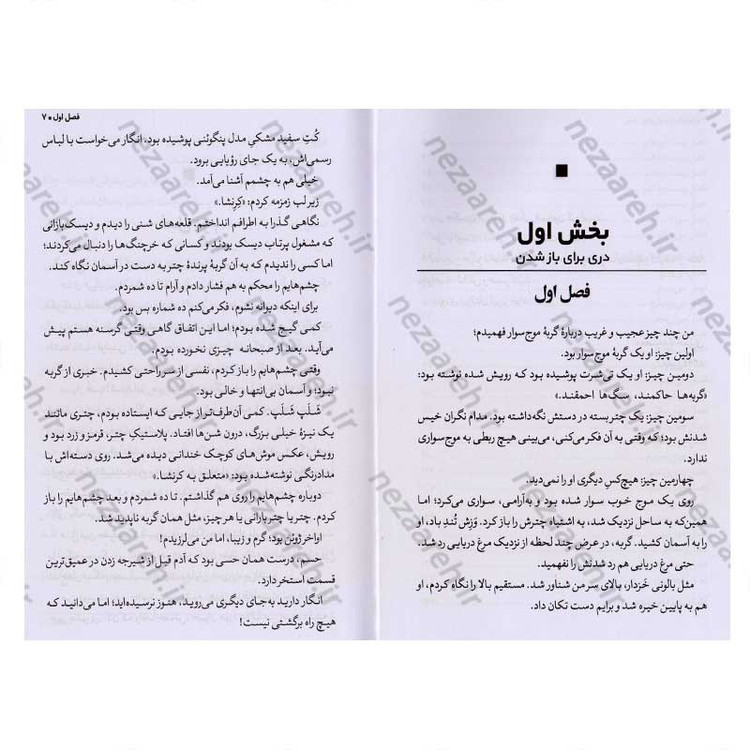 بخش اول
دری برای باز شدن
فصل اول
من چند چیز عجیب و غریب دربارهٔ گربهٔ موج‌سوار فهمیدم؛
اولین چیز: او یک گربهٔ موج‌سوار بود.
دومین چیز: او یک تی‌شرت پوشیده بود که رویش نوشته شده بود:
«گربه‌ها حاکمند، سگ‌ها احمقند.»
سومین چیز: یک چتر بسته در دستش نگه‌داشته بود. مدام نگران خیس
شدنش بود؛ که وقتی به آن فکر می‌کنی، می‌بینی هیچ ربطی به موج‌سواری
ندارد.
چهارمین چیز: هیچ‌کس دیگری او را نمی‌دید.
روی یک موج خوب سوار شده بود و به‌آرامی، سواری می‌کرد؛ اما
همین‌که به ساحل نزدیک شد، به اشتباه چترش را باز کرد. وَزِش تُندِ باد، او
را به آسمان کشید. گربه، در عرض چند لحظه از نزدیک مرغ دریایی رد شد.
حتی مرغ دریایی هم رد شدنش را نفهمید.
مثل بالونی خَزدار، بالای سر من شناور شد. مستقیم بالا را نگاه کردم، او
هم به پایین خیره شد و برایم دست تکان داد.
فصل اول ● ۷
کُتِ سفید مشکیِ مدل پنگوئنی پوشیده بود، انگار می‌خواست با لباس
رسمی‌اش، به یک جای رؤیایی برود.
خیلی هم به چشمم آشنا می‌آمد.
زیر لب زمزمه کردم: «کِرنشا.»
نگاهی گذرا به اطرافم انداختم. قلعه‌های شنی را دیدم و دیسک‌بازانی
که مشغول پرتاب دیسک بودند و کسانی که خرچنگ‌ها را دنبال می‌کردند؛
اما کسی را ندیدم که به آن گربهٔ پرندهٔ چتر به دست در آسمان نگاه کند.
چشم‌هایم را محکم به هم فشار دادم و آرام تا ده شمردم.
برای اینکه دیوانه نشوم، فکر می‌کنم ده شماره بس بود.
کمی گیج شده بودم؛ اما این اتفاق گاهی وقتی گرسنه هستم پیش
می‌آید. بعد از صبحانه چیزی نخورده بودم.
وقتی چشم‌هایم را باز کردم، نفسی از سر راحتی کشیدم. خبری از گربه
نبود؛ و آسمان بی‌انتها و خالی بود.
شَلَپ شَلَپ. کمی آن طرف‌تر از جایی که ایستاده بودم، چتری مانند
یک نیزهٔ خیلی بزرگ، درون شن‌ها افتاد. پلاستیکِ چتر، قرمز و زرد بود و
رویش، عکس موش‌های کوچک خندانی دیده می‌شد. روی دسته‌اش با
مدادرنگی نوشته‌شده بود: «متعلق به کرنشا.»
دوباره چشم‌هایم را روی هم گذاشتم. تا ده شمردم و بعد چشم‌هایم را باز
کردم. چتر یا چتر بارانی یا هر چیز، مثل همان گربه ناپدید شد.
اواخر ژوئن بود؛ گرم و زیبا، اما من می‌لرزیدم!
حسم، درست همان حسی بود که آدم قبل از شیرجه زدن در عمیق‌ترین
قسمت استخر دارد.
انگار دارید به‌جای دیگری می‌روید، هنوز نرسیده‌اید؛ اما می‌دانید که
هیچ راه برگشتی نیست!
nezaareh.ir